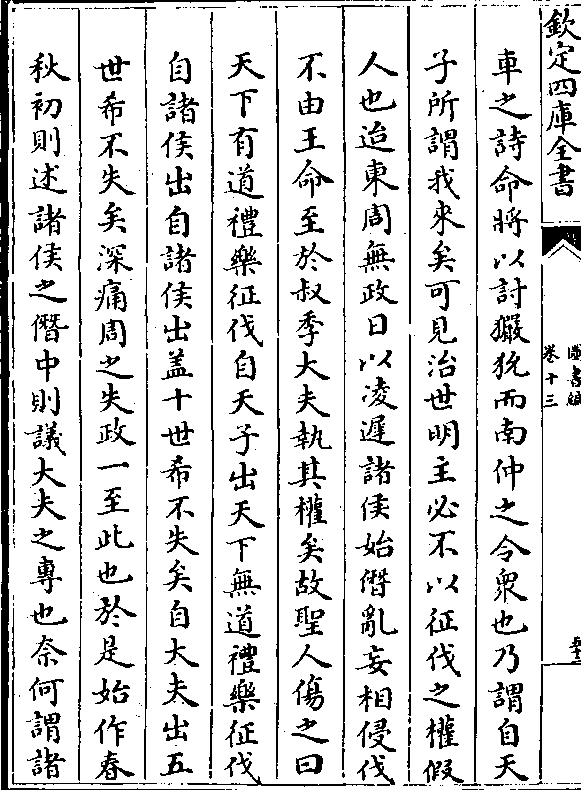 欽定四庫全書
卷十三
車之詩命將以討玁狁而南仲之令衆也乃謂自天
子所謂我來矣可見治世明主必不以征伐之權假
人也迨東周無政日以凌遲諸侯始僭亂妄相侵伐
不由王命至於叔季大夫執其權矣故聖人傷之曰
天下有道禮樂征伐自天子出天下無道禮樂征伐
自諸侯出自諸侯出盖十世希不失矣自大夫出五
世希不失矣深痛周之失政一至此也於是始作春
秋初則述諸侯之僭中則議大夫之專也奈何謂諸